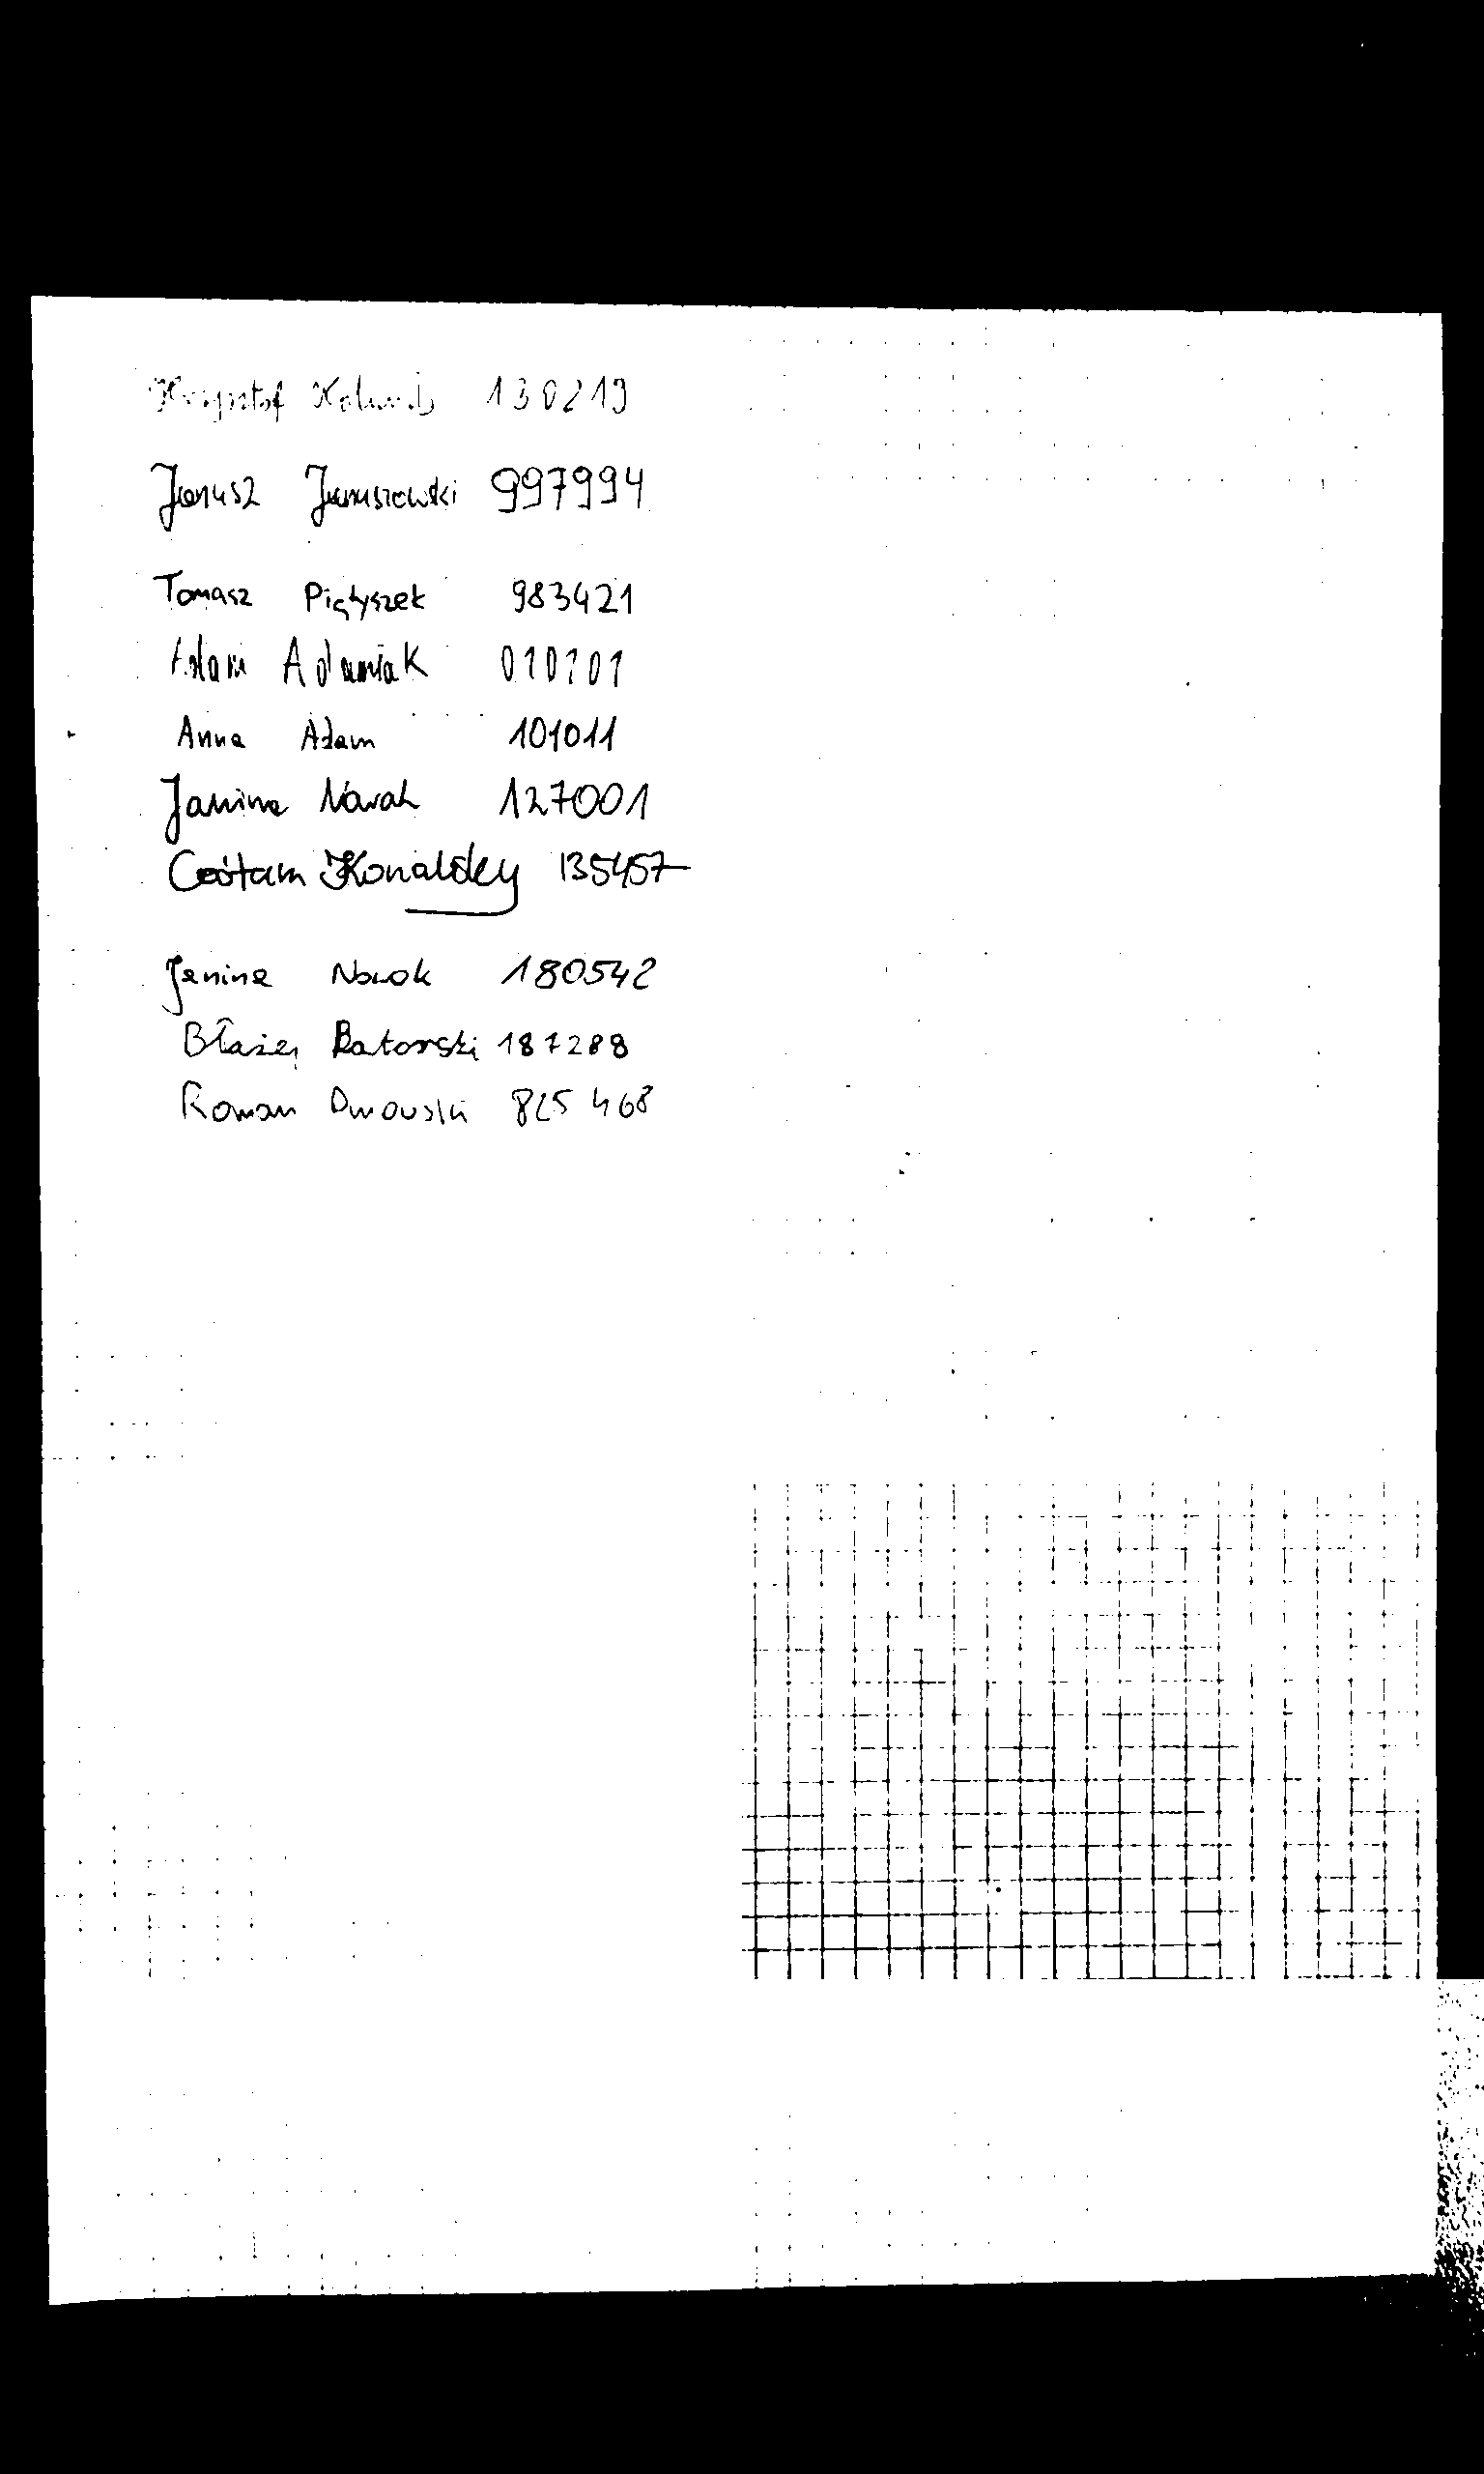 Krzysztof Kolumb 130219
Janusz Januszowski 997994
Tomasz Piątyszek 983421
Adam Adamiak 010101
Anna Adam 101011
Janina Nowak 127001
135457
Janina Nowak 180542
Błażej Batorski 187288
Roman Dmowski 825468